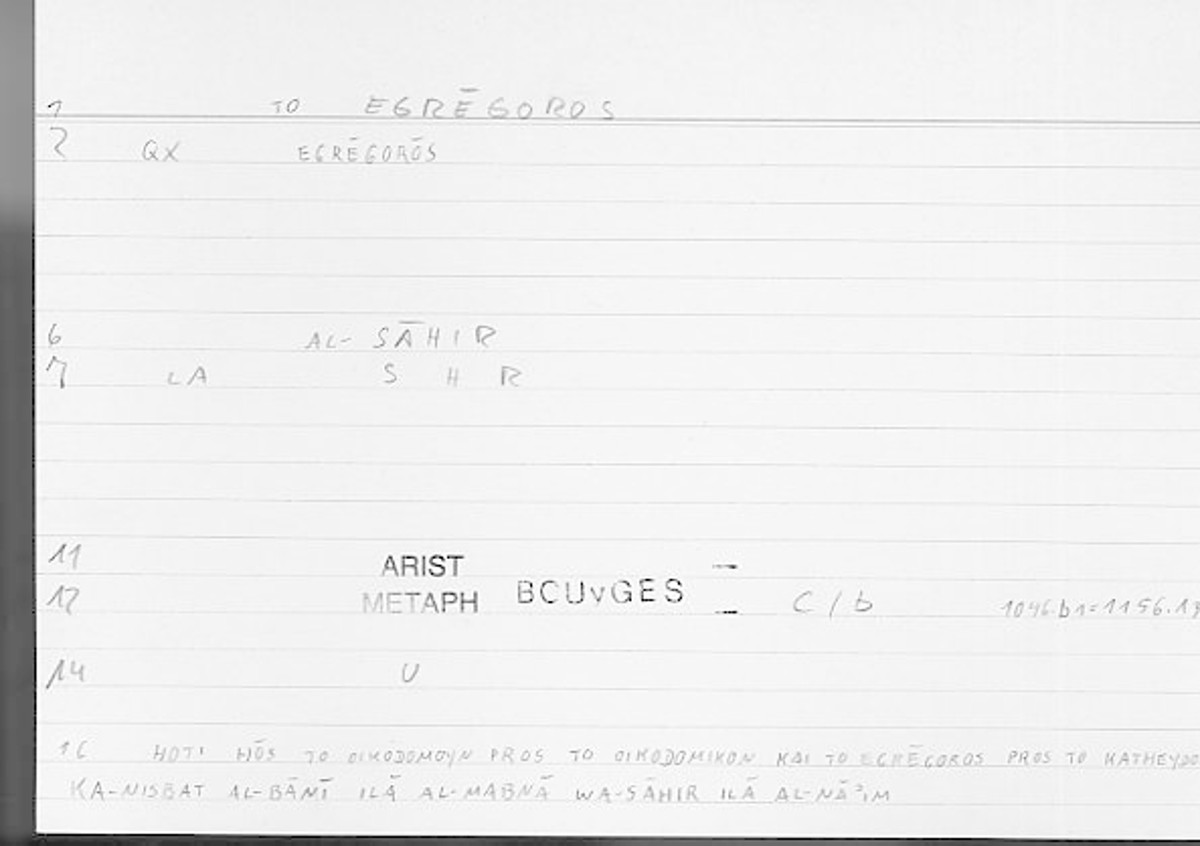 1 TO EGRĒGOROS
2 QX EGRĒGORŌS
6 AL-SĀHIR
7 LA S H R
11 ARIST
12 METAPH BCUvGES C/b 1046.b1=1156.13
14 U
16 HOTI HŌS TO OIKODOMOYN PROS TO OIKODOMIKON KAI TO EGRĒGOROS PROS TO KATHEYDO
KA-NISBAT AL-BĀNĪ ILĀ AL-MABNĀ WA-SĀHIR ILĀ AL-NĀʾIM